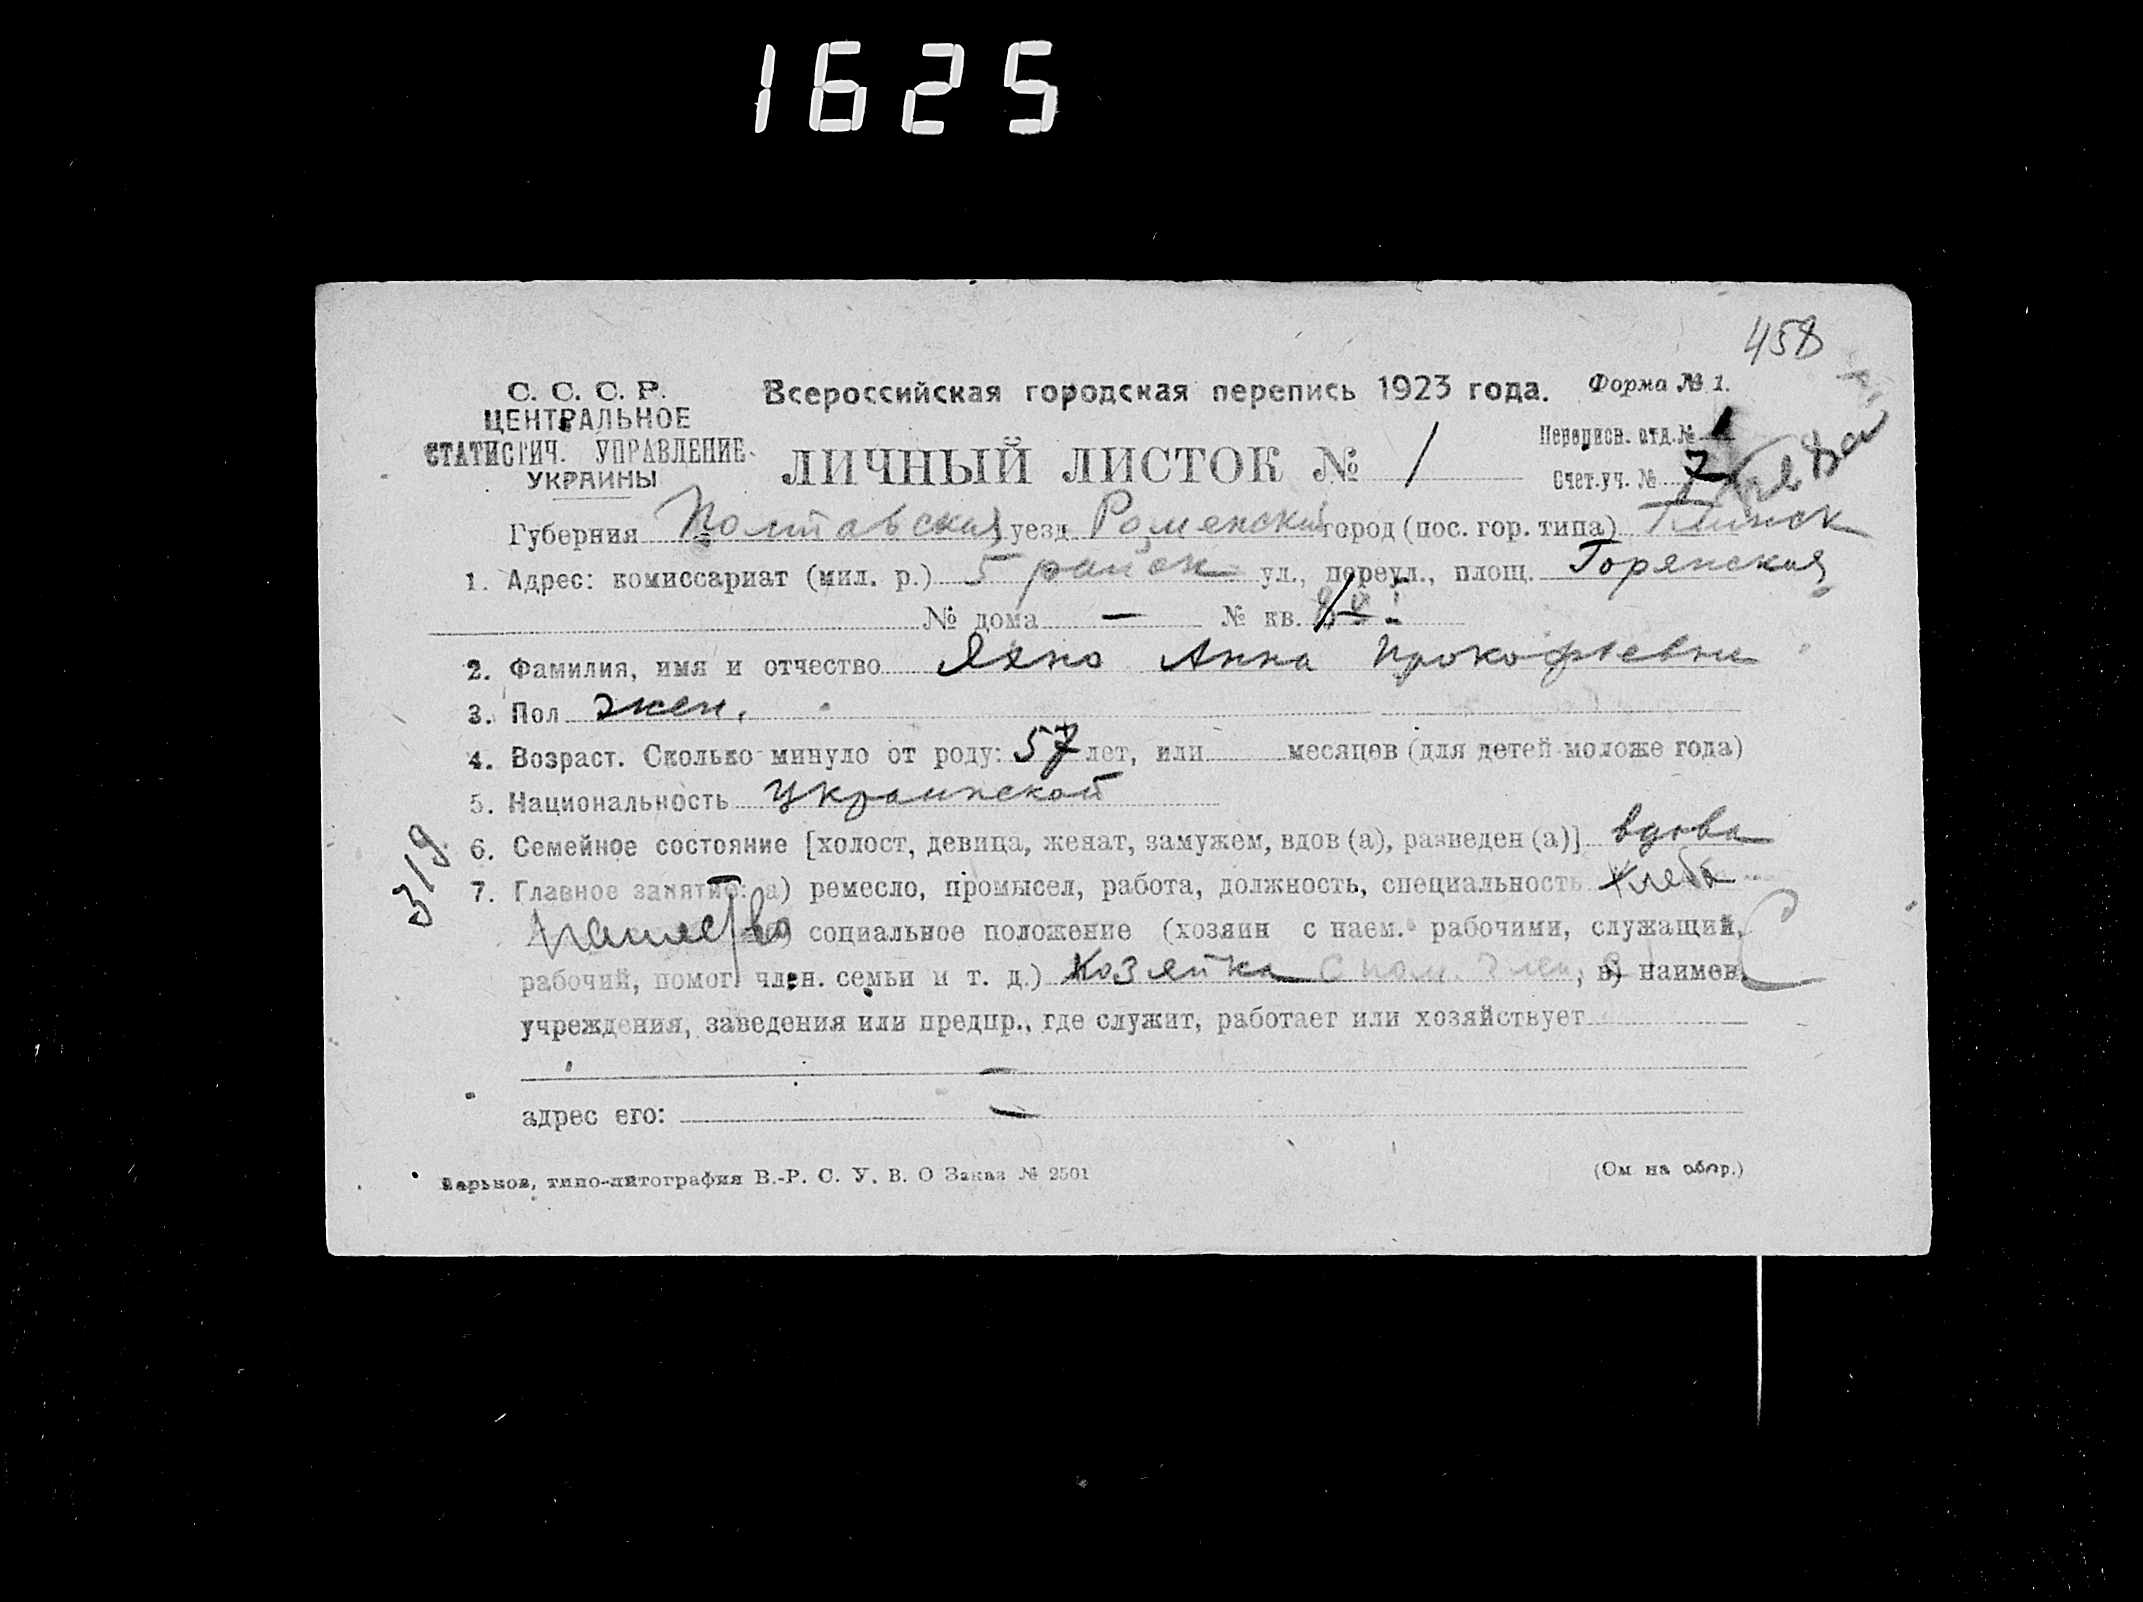 1625
458
С. С. С. Р.
ЦЕНТРАЛЬНОЕ
СТАТИСТИЧ. УПРАВЛЕНИЕ
УКРАИНЫ
Всероссийская городская перепись 1923 года. Форма № 1.
ЛИЧНЫЙ ЛИСТОК № 1
Переписн. отд. № 1
Счет. уч. № 7
Губерния Полтавская уезд Роменский город (пос. гор. типа) Глинск
1. Адрес: комиссариат (мил. р.) 5 район ул., переул., площ. Горянская
№ дома — № кв.
2. Фамилия, имя и отчество Яхно Анна Прокофьевна
3. Пол жен.
4. Возраст. Сколько минуло от роду: 57 лет, или месяцев (для детей моложе года)
5. Национальность Украинской
319
6. Семейное состояние [холост, девица, женат, замужем, вдов (а), разведен (а)] вдова
7. Главное занятие: а) ремесло, промысел, работа, должность, специальность хлебо
пашество социальное положение (хозяин с наем. рабочими, служащий,
рабочий, помог. член. семьи и т. д.) Хозяйка с пом. член; в) наимен.
учреждения, заведения или предпр., где служит, работает или хозяйствует
—
адрес его: —
Харьков, типо-литография В.-Р. С. У. В. О Заказ № 2501
(См на обор.)